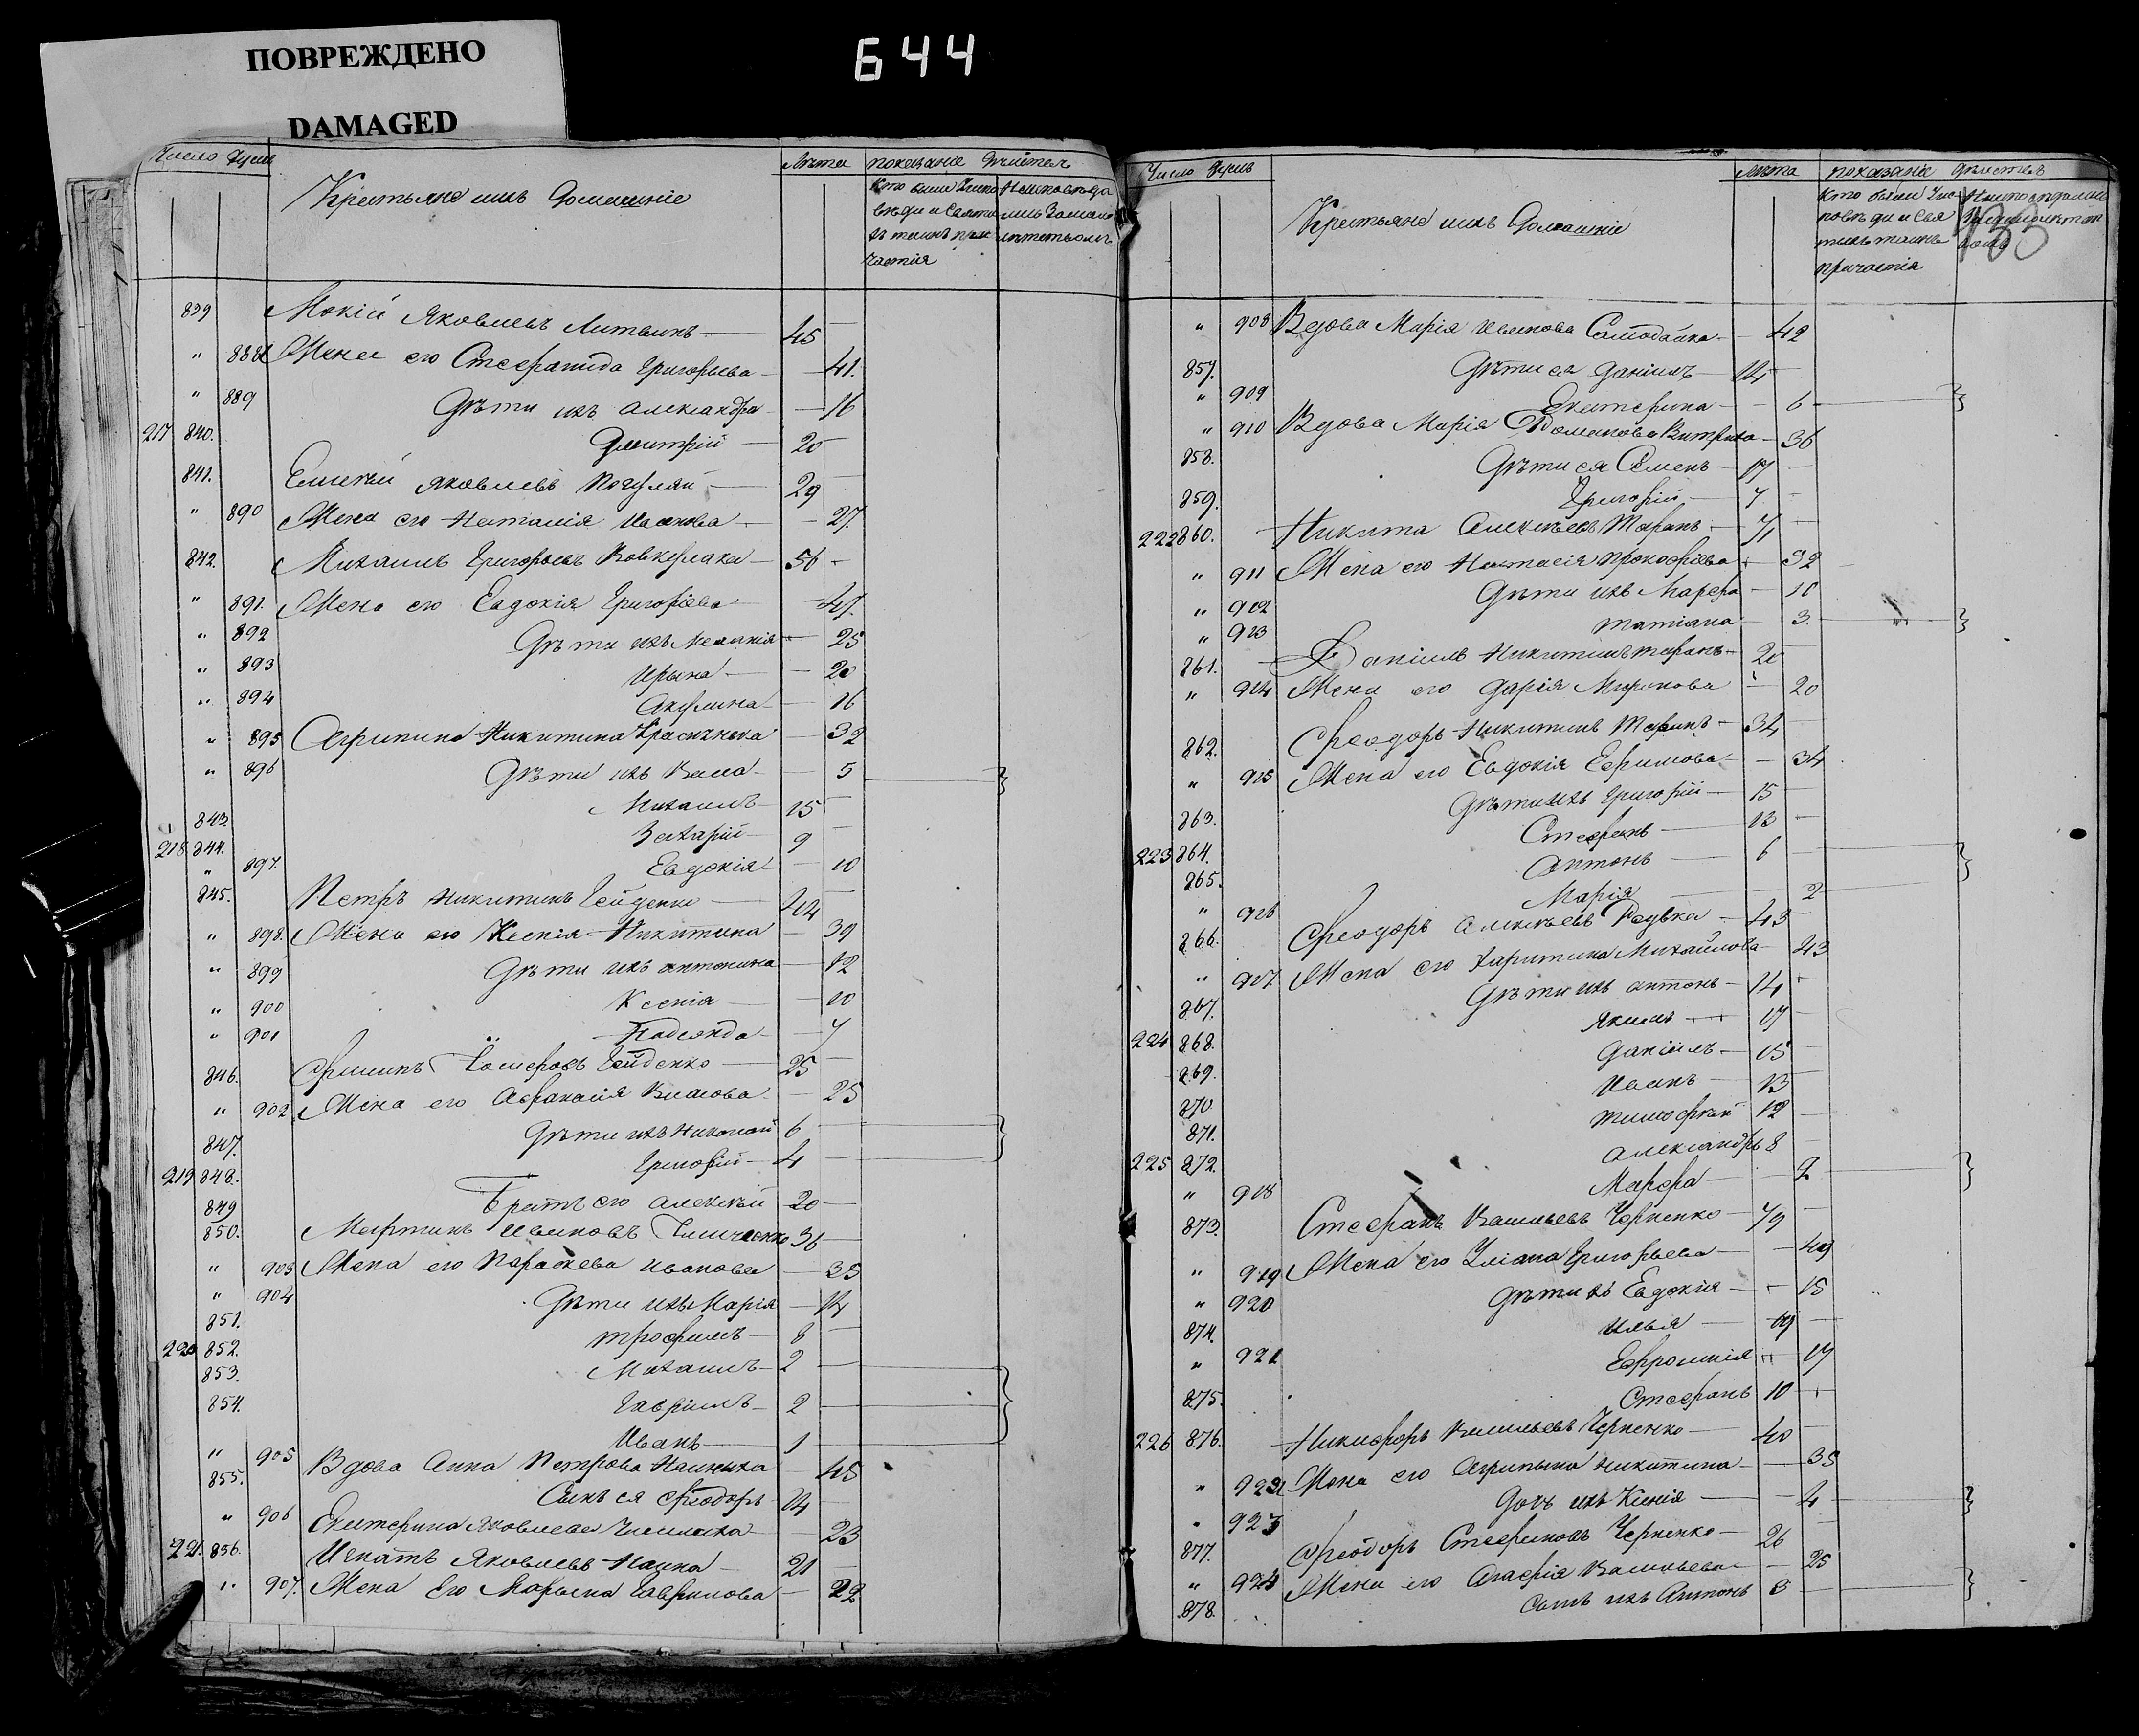 ПОВРЕЖДЕНО
DAMAGED
644
Число Душъ
Крестьяне ихъ Домашніе
Лѣта
показаніе
Кто были
839 Мокій Яковлевъ Литвинъ 45
" 888 Жена его Стефанида Григорьева 41
" 889 Дѣти ихъ Александра 16
217 840. Димитрій 20
841. Яковлевъ 29
" 890 Жена его Наталія Иванова 27
842. Михаилъ Григорьевъ 56
" 891. Жена его Евдокія Григоріева 47
" 892 Дѣти ихъ Меланкія 25
" 893 Ирына 20
" 894 Акулина 16
" 895 Агрипина Никитина 32
" 896 Дѣти ихъ 5
843. Михаилъ 15
218 844. Захарій 9
" 897. Евдокія 10
845. Петръ Никитинъ Гейденко 44
" 898. Жена его Ксенія Никитина 39
" 899 Дѣти ихъ Антонина 12
" 900 Ксенія 10
" 901 Надежда 7
846. Гейденко 25
" 902 Жена его Афанасія 25
847. Дѣти ихъ Николай 6
219 848. Григорій 4
849 Братъ его Алексѣй 20
850. Мартинъ Ивановъ 36
" 903 Жена его Параскева Иванова 35
" 904 Дѣти ихъ Марія 14
851. Трофимъ 8
220 852. Михаилъ 2
853. Гавріилъ 2
854. Иванъ 1
" 905 Вдова Анна Петрова 45
855. Сынъ ея Феодоръ 14
" 906 Екатерина Яковлева 23
221. 856. Игнатъ Яковлевъ 21
" 907. Жена Его Марына 22
Число Душъ
Крестьяне ихъ Домашніе
Лѣта
показаніе
Кто были
причастія
" 908 Вдова Марія Иванова 42
857. Дѣти ея Даніилъ 14
" 909 Екатерина 6
" 910 Вдова Марія 36
858. Дѣти ея Семенъ 17
859. Григорій 7
222 860. Никита Алексѣевъ Таранъ 71
" 911 Жена его Настасія Прокофіева 32
" 912 Дѣти ихъ Марфа 10
" 913 Татіана 3
861. Даніилъ Никитинъ Таранъ 20
" 914 Жена его Дарія Миронова 20
862. Феодоръ Никитинъ Таранъ 34
" 915 Жена его Евдокія Ефимова 34
863. Дѣти ихъ Григорій 15
223 864. Стефанъ 13
865. Антонъ 6
" 916 Марія 2
866. Феодоръ Алексѣевъ Редька 43
" 917 Жена его Харитина Михайлова 43
867. Дѣти ихъ Антонъ 14
224 868. Якимъ 17
869. Даніилъ 15
870 Иванъ 13
871. Тимофѣй 12
225 872. Александръ 8
" 918 Марфа 2
873. Стефанъ Васильевъ Черненко 79
" 919 Жена его Уліана Григорьева 49
" 920 Дѣти ихъ Евдокія 15
874. Илья 19
" 921 Ефросинія 17
875. Стефанъ 10
226 876. Никифоръ Васильевъ Черненко 40
" 922 Жена его Агрипына Никитина 35
" 923 Дочь ихъ Ксинія 4
877. Феодоръ Стефановъ Черненко 26
" 924 Жена его Агафія Васильева 25
878. Сынъ ихъ Антонъ 3